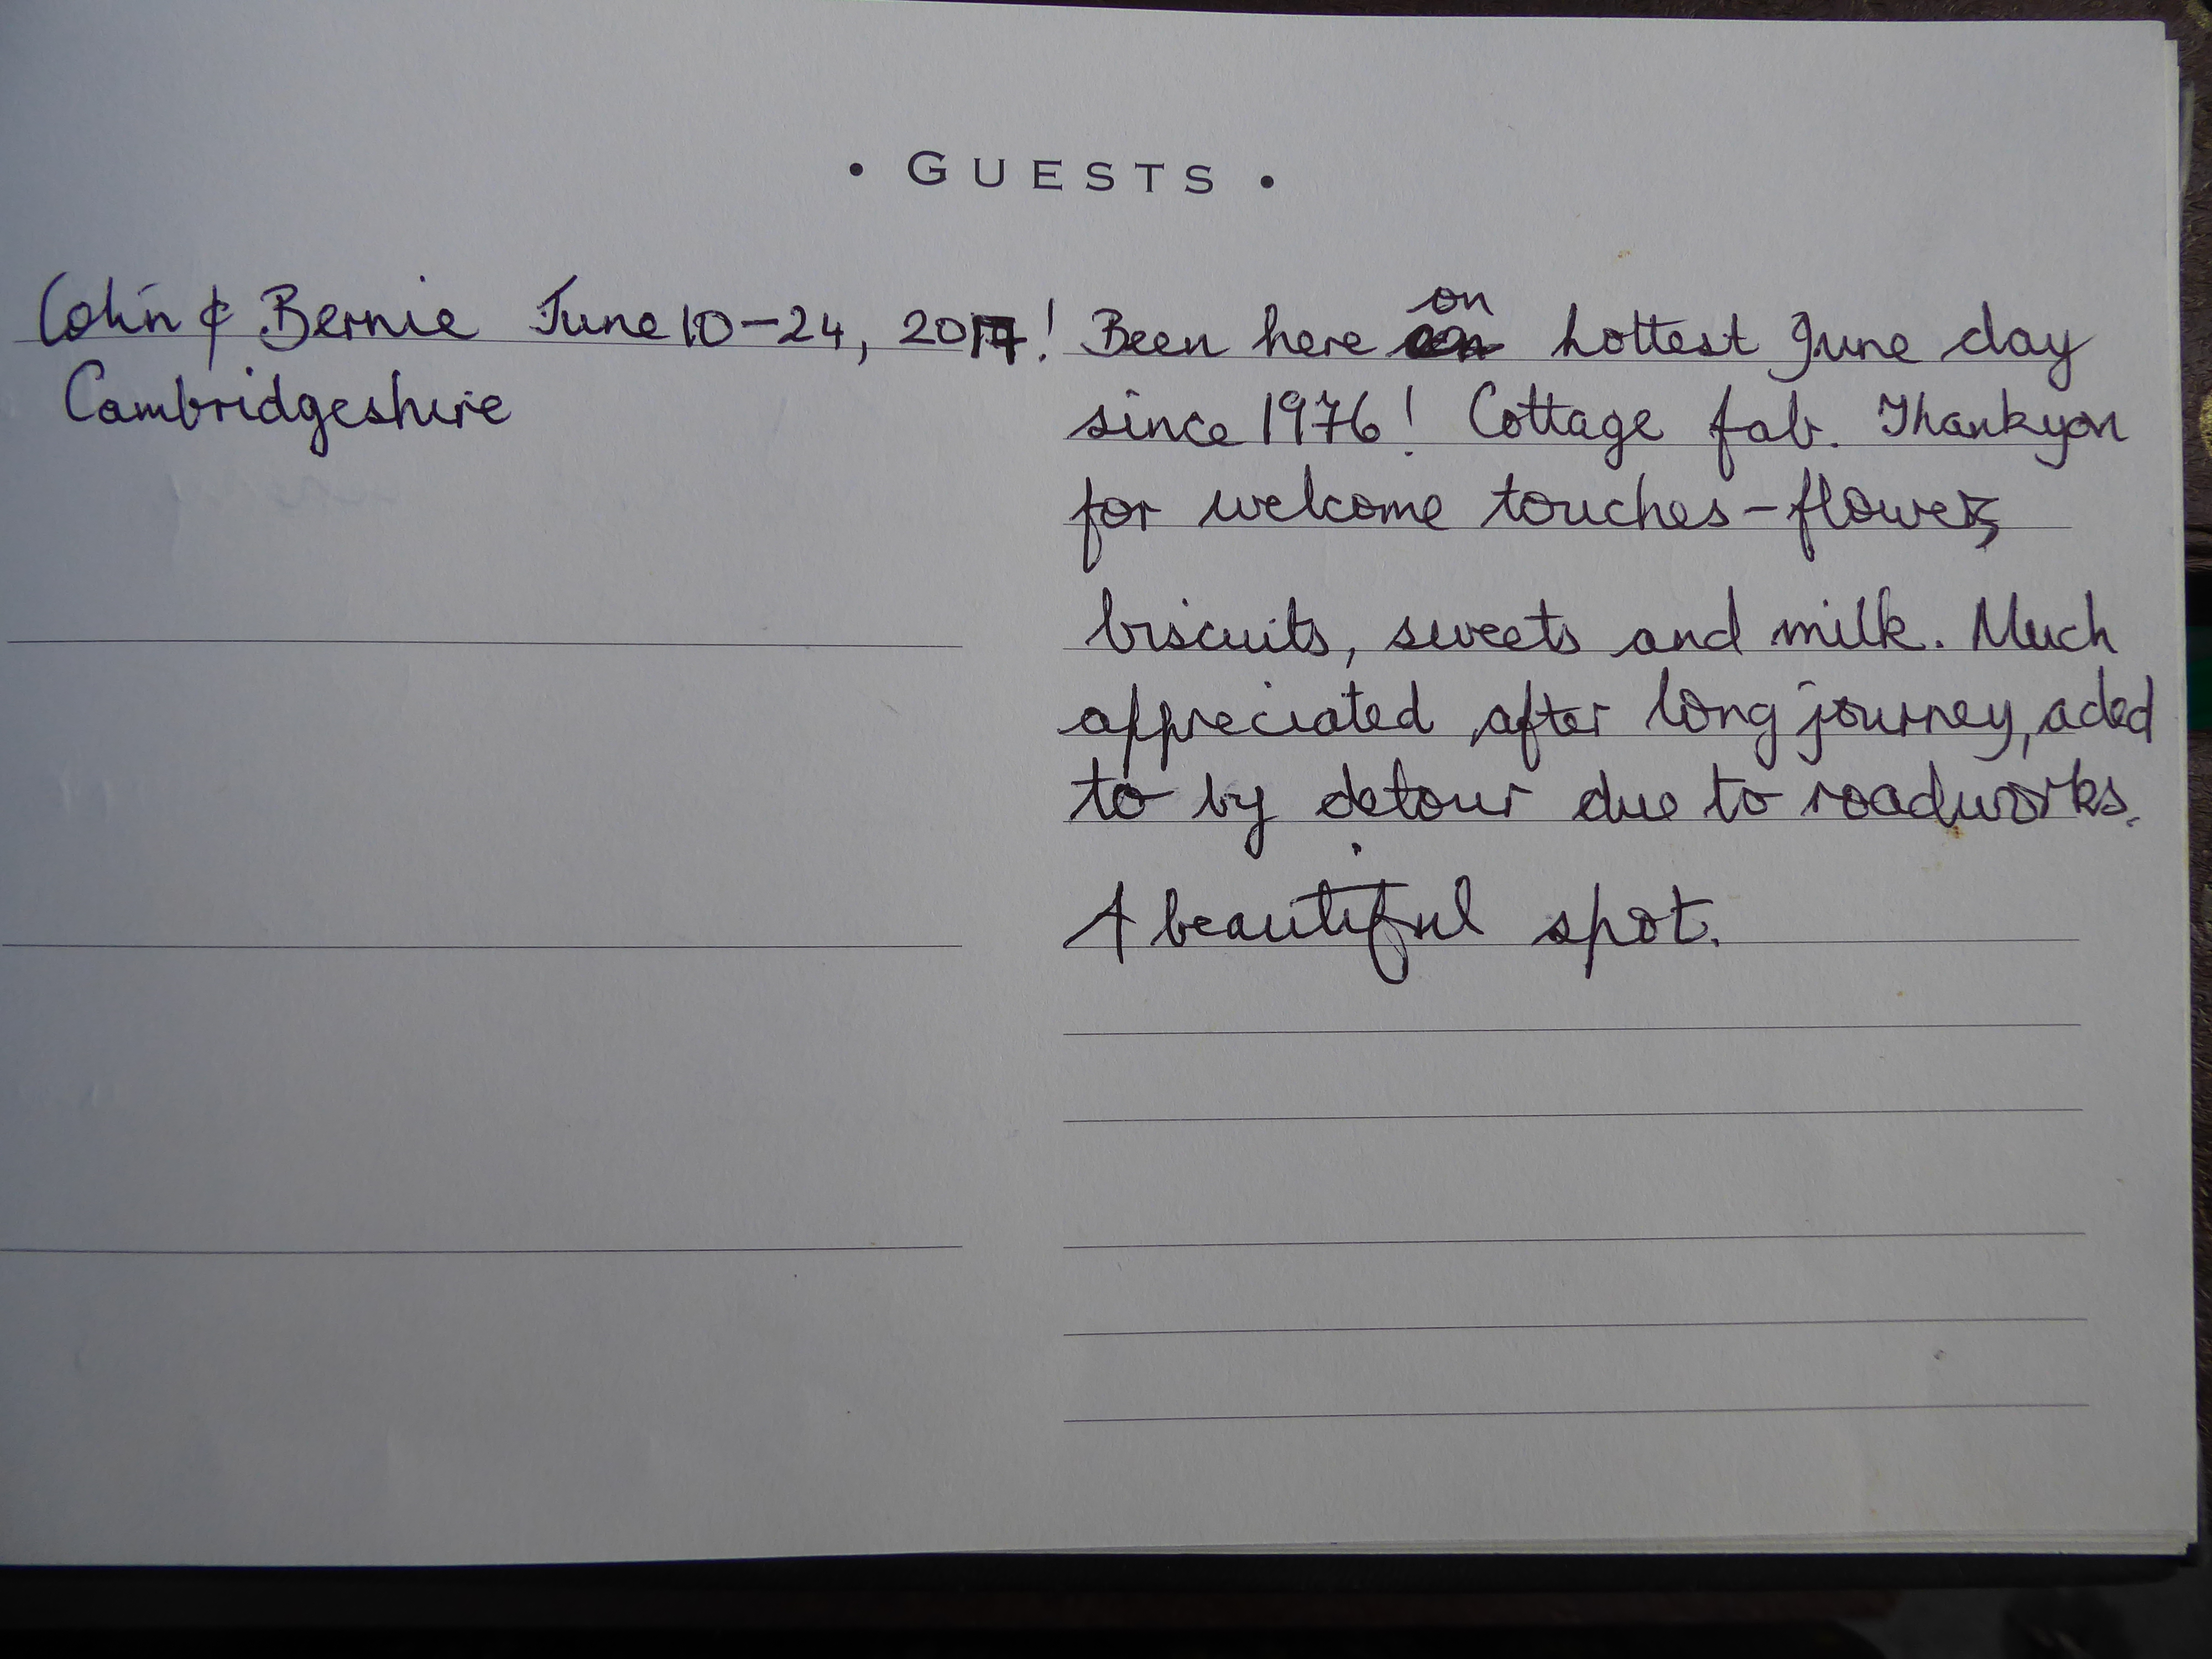 • GUESTS •
Colin & Bernie June 10-24, 2017!
Cambridgeshire
Been here on hottest June day
since 1976! Cottage fab. Thankyou
for welcome touches - flowers,
biscuits, sweets and milk. Much
appreciated, after long journey, aded
to by detour due to roadworks.
A beautiful spot.